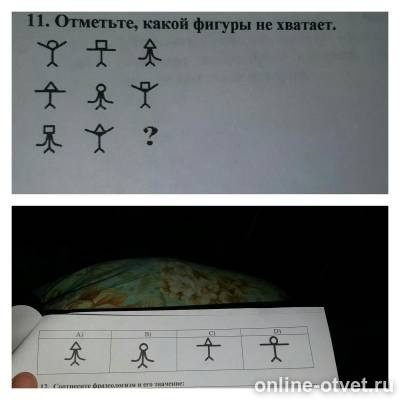 11. Отметьте, какой фигуры не хватает.
?
A) B) C) D)
12. Соотнесите фразеологизм и его значение:
online-otvet.ru